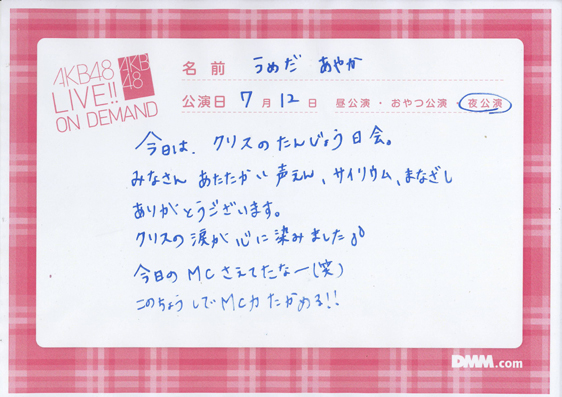 AKB48
LIVE!!
ON DEMAND
AKB
48
名前 うめだ あやか
公演日 7月12日 昼公演・おやつ公演・夜公演
今日は、クリスのたんじょう日会。
みなさん あたたかい声えん、サイリウム、まなざし
ありがとうございます。
クリスの涙が心に染みました
今日のMCさえてたなー(笑)
このちょうしでMC力たかめる!!
DMM.com